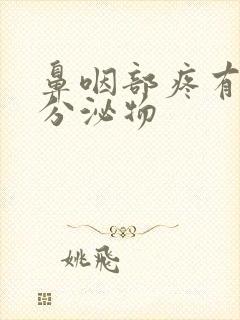 鼻咽部疼有
分泌物
姚飛